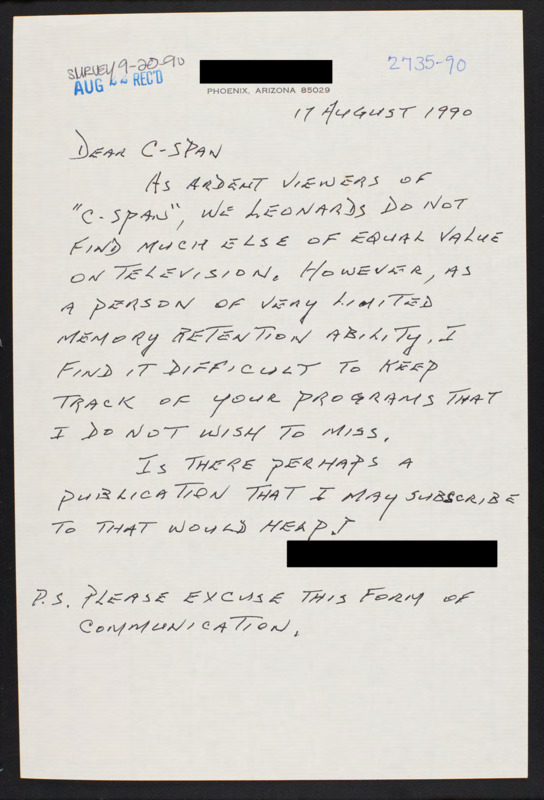 SURVEY 9-20-90
2735-90
AUG 22 REC'D
PHOENIX, ARIZONA 85029
17 AUGUST 1990
DEAR C-SPAN
AS ARDENT VIEWERS OF
"C-SPAN", WE LEONARDS DO NOT
FIND MUCH ELSE OF EQUAL VALUE
ON TELEVISION. HOWEVER, AS
A PERSON OF VERY LIMITED
MEMORY RETENTION ABILITY, I
FIND IT DIFFICULT TO KEEP
TRACK OF YOUR PROGRAMS THAT
I DO NOT WISH TO MISS.
IS THERE PERHAPS A
PUBLICATION THAT I MAY SUBSCRIBE
TO THAT WOULD HELP?
P.S. PLEASE EXCUSE THIS FORM OF
COMMUNICATION.